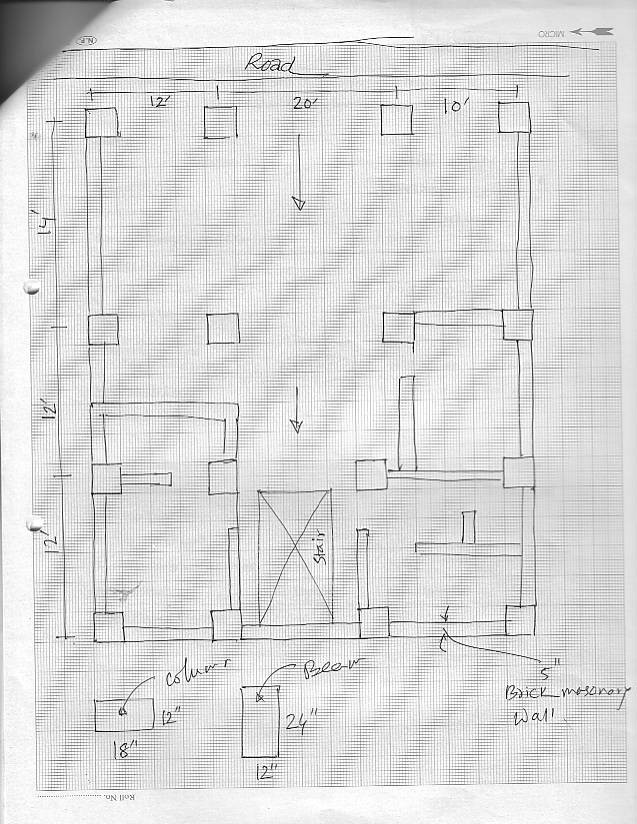 MICRO
N.F.
Road
12'
20'
10'
14'
12'
12'
Stair
Column
12"
18"
Beam
24"
12"
5"
Brick masonary
Wall.
Roll No.